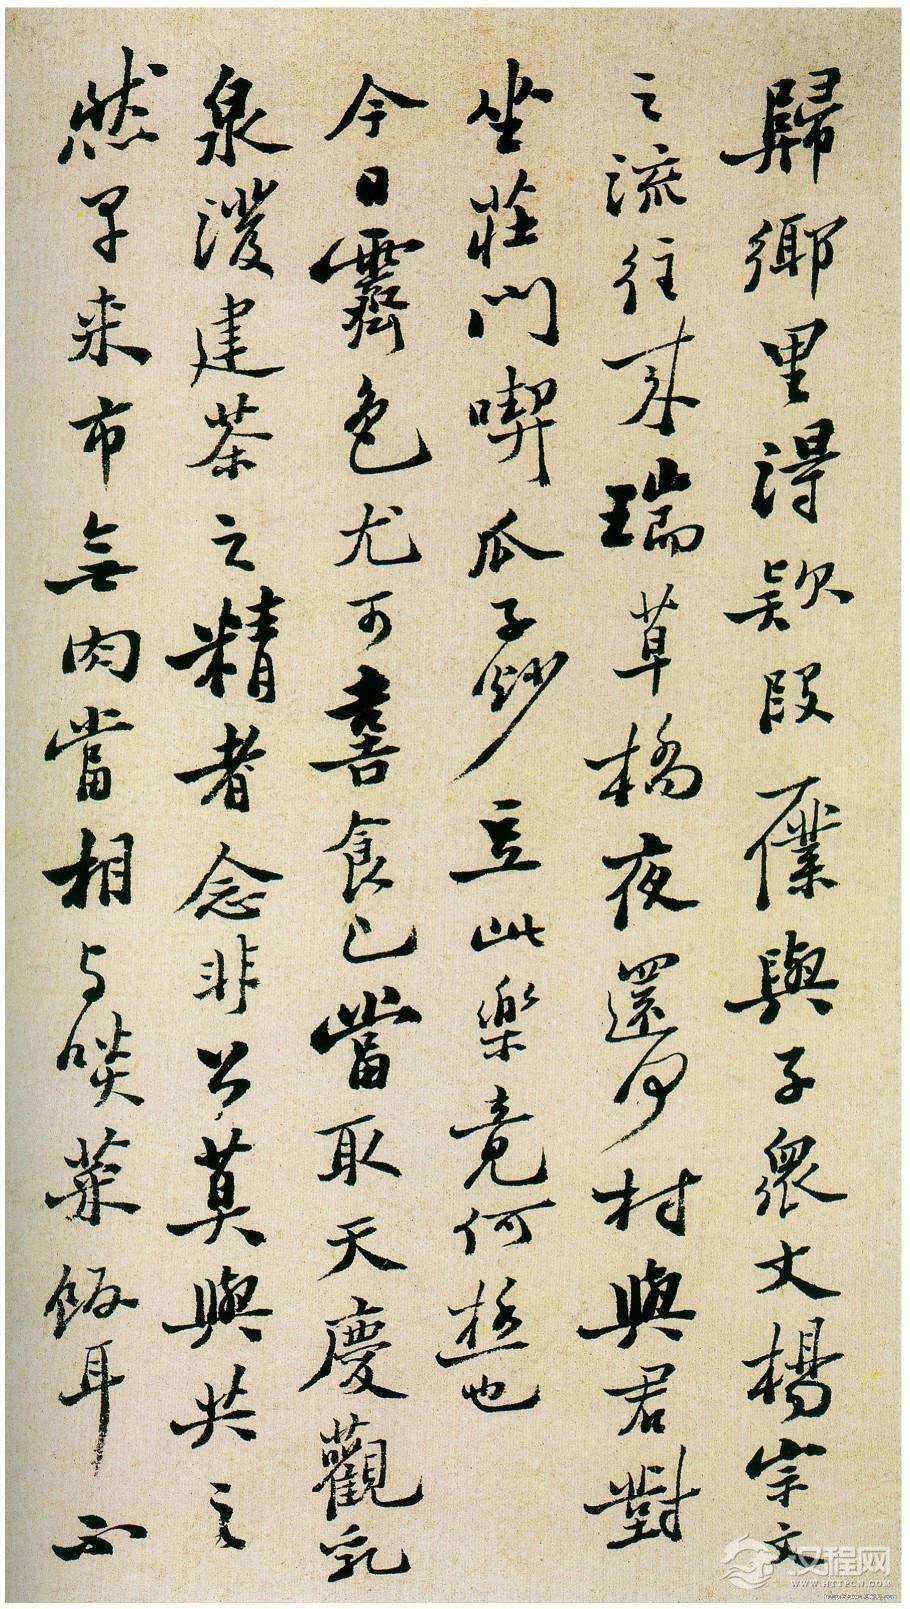 歸鄉里得欵段一僕與子衆丈楊宗文
之流往來瑞草橋夜還何村與君對
坐莊門喫瓜子炒豆此樂竟何極也
今日霽色尤可喜食已當取天慶觀乳
泉潑建茶之精者念非公莫與共之
然早来市無肉當相与啖菜飯耳不
汉程网
WWW.HTTPCN.COM